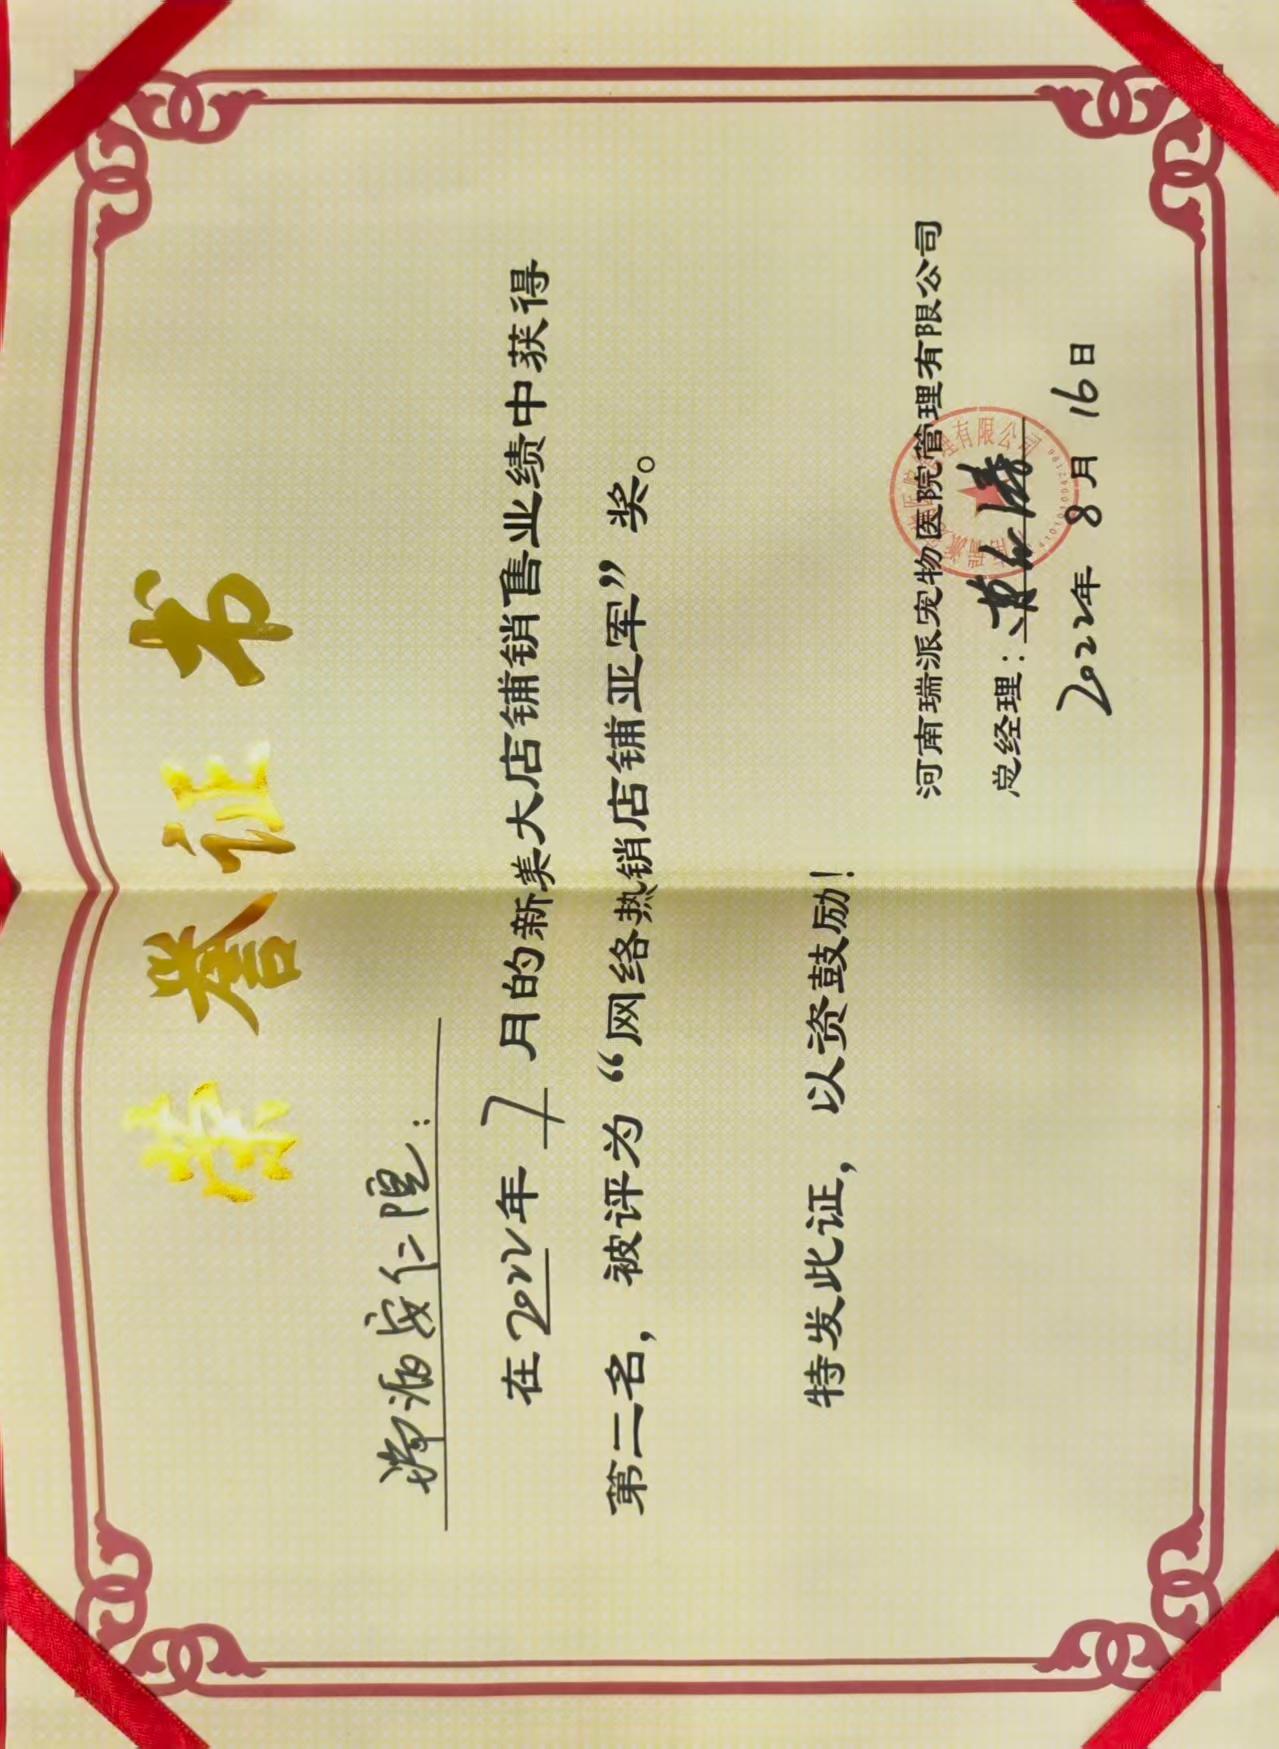 荣誉证书
瑞派安仁院：
在2022年7月的新美大店铺销售业绩中获得
第二名，被评为“网络热销店铺亚军”奖。
特发此证，以资鼓励！
河南瑞派宠物医院管理有限公司
总经理：
2022年8月16日